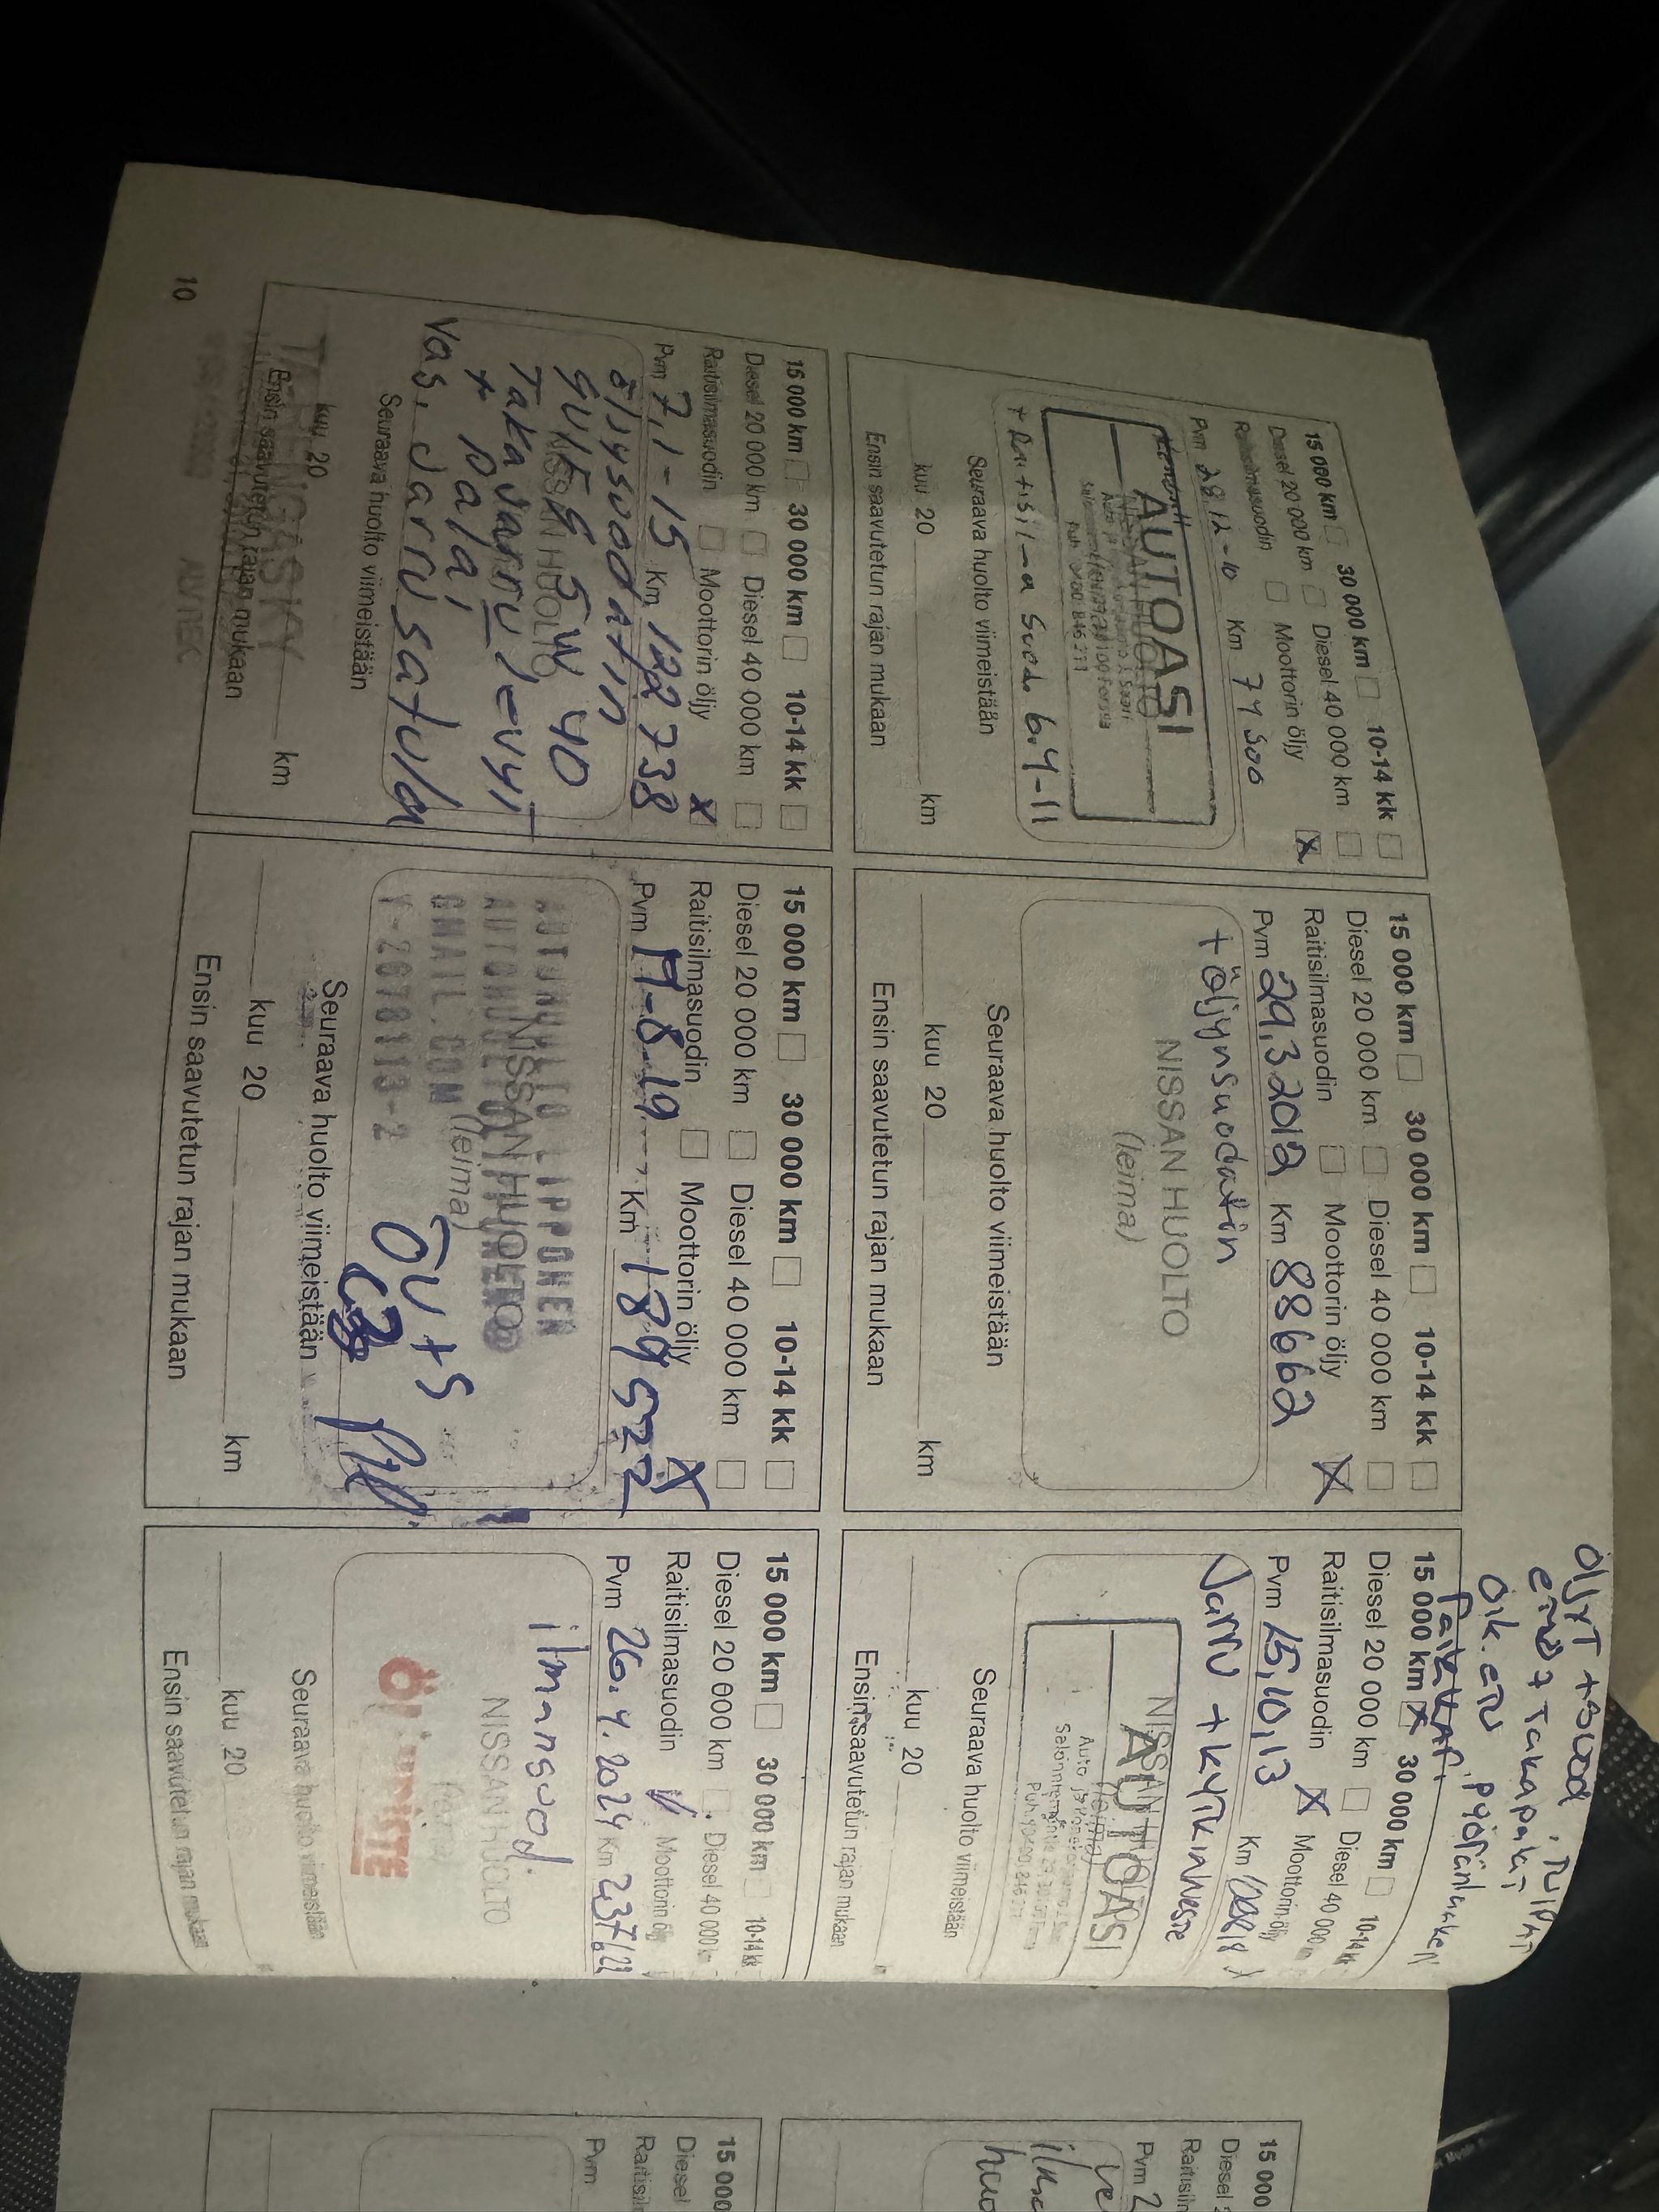 öljyT + suod. TulpaT
eTu + Takapalat
Oik. eTu pyöränlaakeri
15 000 km 30 000 km 10-14 kk
Diesel 20 000 km Diesel 40 000 km
Raitisilmasuodin Moottorin öljy X
Pvm 28.12-10 Km 74 500
AUTOASI
+ Raitisilma Suod. 6.4-11
Seuraava huolto viimeistään
kuu 20 km
Ensin saavutetun rajan mukaan
15 000 km 30 000 km 10-14 kk
Diesel 20 000 km Diesel 40 000 km
Raitisilmasuodin Moottorin öljy X
Pvm 29,3 2012 Km 88662
+ öljynsuodatin
NISSAN HUOLTO
(leima)
Seuraava huolto viimeistään
kuu 20 km
Ensin saavutetun rajan mukaan
15 000 km X 30 000 km 10-14 kk
Diesel 20 000 km Diesel 40 000 km
Raitisilmasuodin X Moottorin öljy
Pvm 15,10,13 Km
Jarru + kytkinneste
NISSAN HUOLTO
AUTOASI
Seuraava huolto viimeistään
kuu 20
Ensin saavutetun rajan mukaan
15 000 km 30 000 km 10-14 kk
Diesel 20 000 km Diesel 40 000 km
Raitisilmasuodin Moottorin öljy X
Pvm 7,1-15 Km 122 738
öljysuodatin
5W 40
NISSAN HUOLTO
Takajarru levyt
+ Palat
vas. Jarrusatula
Seuraava huolto viimeistään
kuu 20 km
Ensin saavutetun rajan mukaan
10
15 000 km 30 000 km 10-14 kk
Diesel 20 000 km Diesel 40 000 km
Raitisilmasuodin Moottorin öljy X
Pvm 17-8.19 Km 189 522
AUTOHUOLTO LIPPONEN
NISSAN HUOLTO
GMAIL.COM
(leima)
Y-2678113-2
ÖV+S
Seuraava huolto viimeistään
kuu 20 km
Ensin saavutetun rajan mukaan
15 000 km 30 000 km 10-14 kk
Diesel 20 000 km Diesel 40 000 km
Raitisilmasuodin V Moottorin öljy
Pvm 26.4.2024 Km
ilmansuod.
NISSAN HUOLTO
Seuraava huolto viimeistään
kuu 20
Ensin saavutetun rajan mukaan
15 000
Diesel
Pvm 2
15 000
Diesel
Pvm